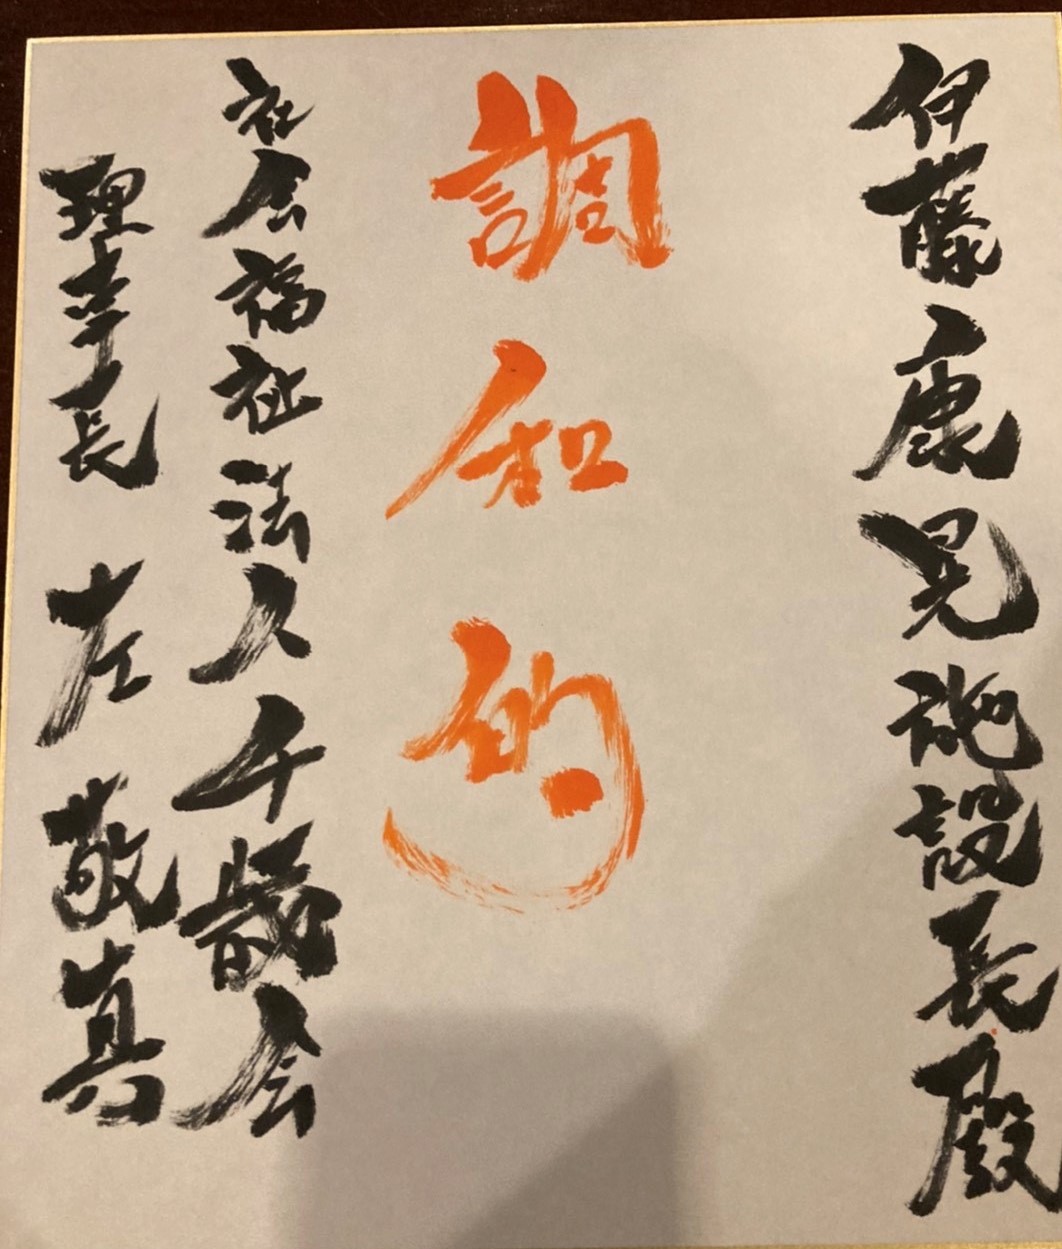 伊藤康晃施設長殿
調和的
社会福祉法人千歳会
理事長 左敬真